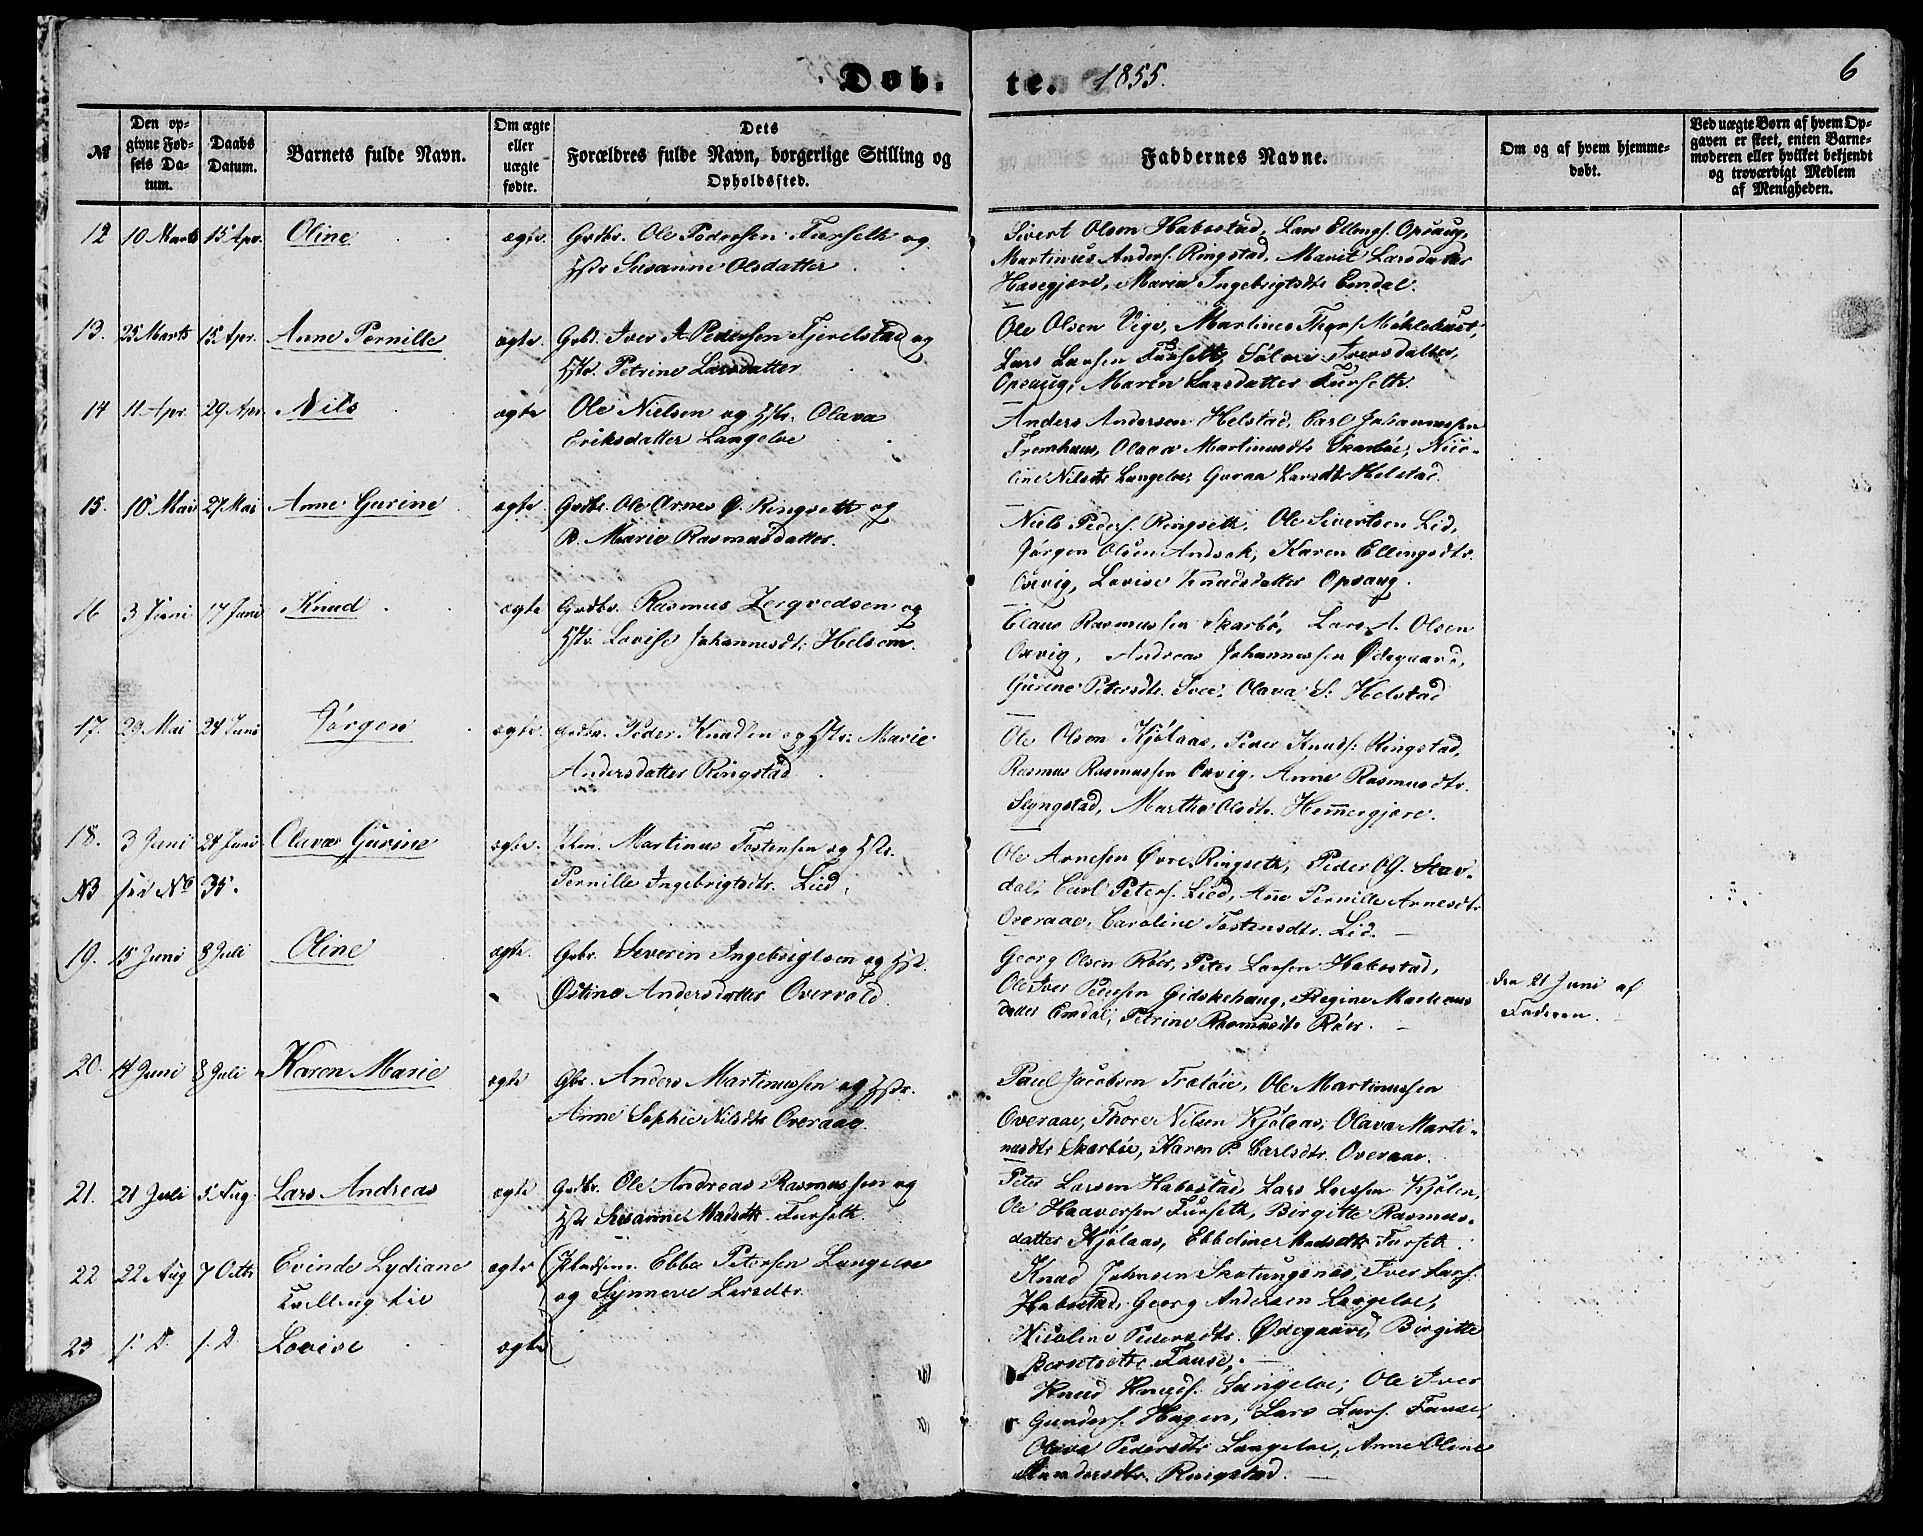 Døb. te. 1855. 6
№ Den opgivne Fødsels Datum. Daabs Datum. Barnets fulde Navn. Om ægte eller uægte fødte. Dets Forældres fulde Navn, borgerlige Stilling og Opholdssted. Faddernes Navne. Om og af hvem hjemmedøbt. Ved uægte Børn af hvem Opgaven er skeet, enten Barnemoderen eller hvilket bekjendt og troværdigt Medlem af Menigheden.
12 10 Marts 15 Apr. Oline ægte. Grdbr. Ole Pedersen Furseth og
Hstr Susanne Olsdatter
Sivert Olsen Habostad, Lars Ellings. Opsaug,
Martinus Anders. Ringstad, Marit Larsdatter
Hasegjere, Maria Ingebrigtsdtr Emdal.
13. 25 Marts 15 Apr. Anne Pernille ægte. Grbr. Iver A Pedersen Fjerelstad og
Hstr. Petrine Larsdatter
Ole Olsen Vigs, Martines Thors.
Lars Larsen Furseth, Iversdatter,
Opsaug, Maren Larsdatter Furseth.
14 11 Apr 29 Apr. Nils ægte Ole Nielsen og Hstr. Olava
Eriksdatter Langeloe
Anders Andersen Helstad, Carl Johannessen
Fremhaus, Olava Martinusdtr Skarbøe, Nico-
line Nilsdtr Langeloe, Guraa Larsdtr Helstad.
15. 10 Mai 27 Mai Anne Gurine ægte Grdbr. Ole Arnes Ø. Ringseth og
Marie Rasmusdatter.
Niels Peders. Ringseth, Ole Sivertsen Lid,
Jørgen Olsen Andsok, Karen Ellingsdtr.
Oxvig, Lovise Knudsdatter Opsaug.
16 3 Juni 17 Juni Knud ægte Grdbr. Rasmus og
Hstr. Lovise Johannesdt. Helsem.
Claus Rasmussen Skarbø, Lars A. Olsen
Oxvig, Andreas Johannessen Ødegaard,
Gurine Petersdtr. Svee, Olava S. Helstad
17. 29 Mai 24 Juni Jørgen ægte. Grdbr. Peder Knudsen og Hstr. Marie
Andersdatter Ringstad
Ole Olsen Kjølaas, Peder Knuds. Ringstad,
Rasmus Rasmussen Oxvig, Anne Rasmusdtr.
Slyngstad, Marthe Olsdtr. Hemmergjere.
18. 3 Juni 24 Juni Olava Gurine ægte. Martinus Tostensen og Hstr.
NB før No 35. Pernille Ingebrigtsdtr. Lied.
Ole Arnesen Øvre Ringseth, Peder Ols. Stav-
dal, Carl Peters. Lied, Ane Pernille Arnesdtr
Overaae, Caroline Tostensdtr. Lid.
19. 15 Juni 8 Juli Oline ægte. Gbr. Severin Ingebrigtsen og Hstr.
Østine Andersdatter Overvold.
Georg Olsen Røer, Peter Larsen Habostad,
Ole Iver Pedersen Gidskehaug, Regine Martinus
datter Emdal, Petrine Rasmusdtr Røer.
den 21 Juni af
Faderen.
20. 14 Juni 8 Juli Karen Marie ægte Gbr. Anders Martinussen og Hstr.
Anne Sophie Nilsdtr Overaae.
Paul Jacobsen Ole Martinussen
Overaae, Thore Nilsen Kjølaas, Olava Marti-
nusdtr Skarbøe, Karen P. Carlsdtr. Overaae.
21. 21 Juli 5 Aug. Lars Andreas ægte Grdbr. Ole Andreas Rasmussen og
Hstr Susanne Madsdtr. Furseth.
Peter Larsen Habostad, Lars Larssen Kjølen,
Ole Haaversen Furseth, Birgitte Rasmus-
datter Kjølaas, Ebbeline Madsdtr Furseth.
22 22 Aug 7 Octbr Evinde Lydiane ægte Ebbe Petersen Langeloe
Tvilling til og Synneve Larsdtr.
Knud Johnsen Skotungenes, Iver Lars.
Habostad, Georg Andersen Langeloe,
Nicoline Pedersdtr. Ødegaard, Birgitte
Berntsdtr Fause.
23 s. D. s. D. Lovise ægte
Knud Knuds. Langeloe, Ole Iver
Gunders. Hagen, Lars Lars. Fause,
Olava Pedersdtr Langeloe, Anne Oline
Ringstad.